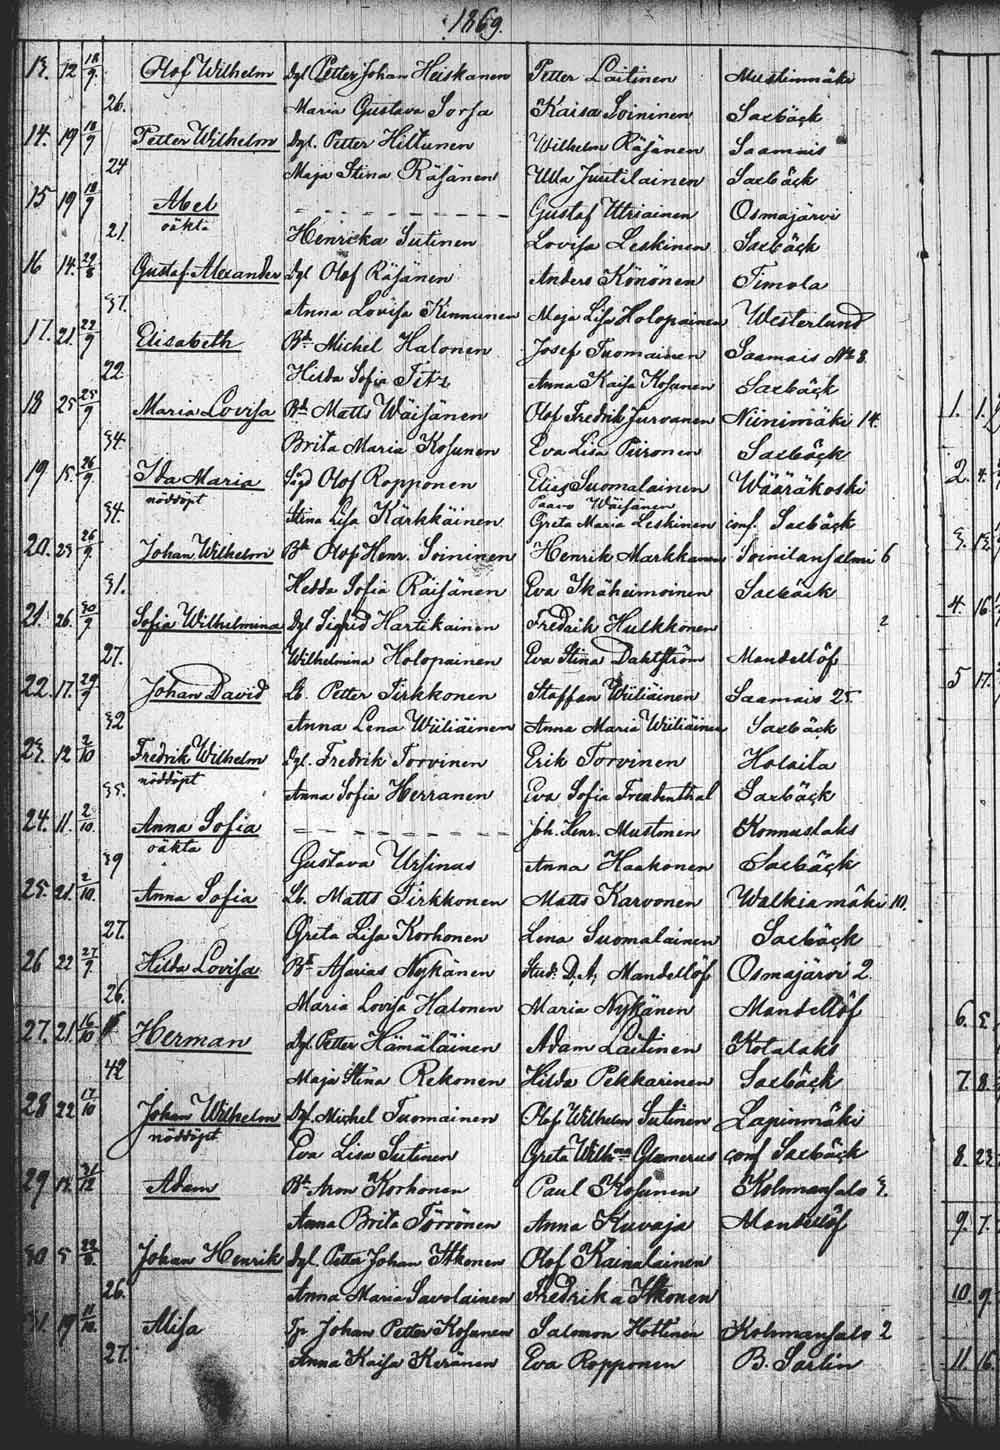 1869.
13. 12 18/9. Olof Wilhelm Dgl Petter Johan Heiskanen Petter Laitinen Mustinmäki
26. Maria Gustava Sorsa Kaisa Soininen Saxbäck
14. 19 18/9 Petter Wilhelm Dgl. Petter Hiltunen Wilhelm Räsänen Saamais
24 Maja Stina Räsänen Ulla Juutilainen Saxbäck
15 19 18/9 Abel Gustaf Ittriainen Osmajärvi
oäkta
21. Henricka Sutinen Lovisa Leskinen Saxbäck
16 14. 29/8 Gustaf Alexander Dgl Olof Räsänen Anders Könönen Timola
31. Anna Lovisa Kinnunen Maja Lisa Holopainen Westerlund
17. 21. 22/9 Elisabeth Bd. Michel Halonen Josef Tuomainen Saamais No 8.
22. Hilda Sofia Titz Anna Kaisa Kosunen Saxbäck
18 25 25/9 Maria Lovisa Bd. Matts Wäisänen Olof Fredrik Jurvanen Niinimäki 14. 1. 1.
34. Brita Maria Kosunen Eva Lisa Piironen Saxbäck
19 15. 26/9 Ida Maria Olof Ropponen Elias Suomalainen Wääräkoski 2. 4.
nöddöpt Paavo Wäisänen
34. Stina Lisa Kärkkäinen Greta Maria Leskinen conf. Saxbäck
20. 23 26/9 Johan Wilhelm Bd Olof Henr. Soininen Henrik Markkanen Soinilansalmi 6 3. 13.
31. Hedda Sofia Räisänen Eva Ikäheimoinen Saxbäck
21. 26. 30/9 Sofia Wilhelmina Dgl Sigfrid Hartikainen Fredrik Hulkkonen 2 4. 16
27. Wilhelmina Holopainen Eva Stina Dahlström Mandellöf
22. 17. 29/9 Johan David Lb. Petter Tirkkonen Staffan Wiiliäinen Saamais 25. 5 17.
32 Anna Lena Wiiliäinen Anna Maria Wiiliäinen Saxbäck
23. 12 2/10 Fredrik Wilhelm Dgl. Fredrik Torvinen Erik Torvinen
nöddöpt
35. Anna Sofia Herranen Eva Sofia Freudenthal Saxbäck
24. 11. 2/10. Anna Sofia Joh. Henr. Mustonen Konnuslaks
oäkta
39 Gustava Ursinus Anna Haakonen Saxbäck
25. 21. 2/10. Anna Sofia Lb. Matts Tirkkonen Matts Karvonen Walkiamäki 10.
27. Greta Lisa Korhonen Lena Suomalainen Saxbäck
26 22 27/9. Hilda Lovisa Bd Asarias Nykänen Stud. D. A. Mandellöf Osmajärvi 2
26. Maria Lovisa Halonen Maria Nykänen Mandellöf 6. 5.
27. 21. 16/10 Herman Dgl. Petter Hämäläinen Adam Laitinen Kotalaks
42 Maja Stina Rekonen Hilda Pekkarinen Saxbäck 7. 8.
28 22 17/10 Johan Wilhelm Dgl. Michel Tuomainen Olof Wilhelm Sutinen Lapinmäki
nöddöpt
Eva Lisa Sutinen Greta Wilhma Glamerus conf Saxbäck 8. 23.
29 Adam Bd. Aron Korhonen Paul Kosunen Kohmansalo 3.
Anna Brita Törrönen Anna Kuvaja Mandellöf 9. 7.
30 5 Johan Henrik Dgl. Petter Johan Itkonen Olof Kainalainen
26. Anna Maria Savolainen Fredrika Itkonen 10. 9.
31. 19 11/10. Alisa Tp Johan Petter Kosunen Salomon Hottinen Kohmansalo 2
27. Anna Kaisa Keränen Eva Ropponen B. Sarlin 11. 16.